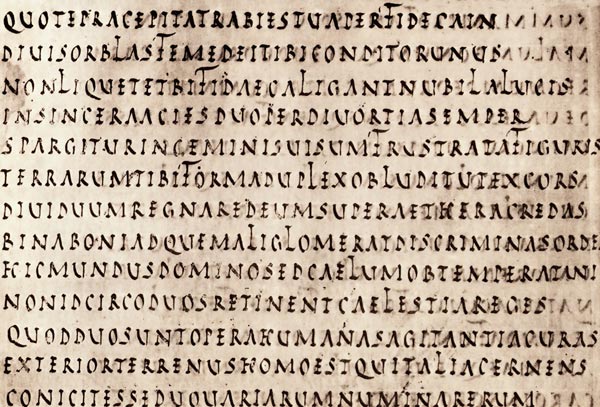 QUOTEPRAECEPITATRABIESTUAPERFIDECAIN
DIUISORBLASFEMEDEITIBICONDITORUNUS
NONLIQUETETBIFIDAECALIGANTNUBILALUCIS
INSINCERAACIESDUOPERDIUORTIASEMPER
SPARGITURINGEMINISUISUMFRUSTRATAFIGURIS
TERRARUMTIBIFORMADUPLEXOBLUDITUTEXCORS
DIUIDUUMREGNAREDEUMSUPERAETHERACREDAS
BINABONIADQUEMALIGLOMERATDISCRIMINASORDE
HICMUNDUSDOMINOSEDCAELUMOBTEMPERATUNI
NONIDCIRCODUOSRETINENTCAELESTIAREGES
QUODDUOSUNTOPERAHUMANASAGITANTIACURAS
EXTERIORTERRENUSHOMOESTQUITALIACERNENS
CONICITESSEDUOUARIARUMNUMINARERUM